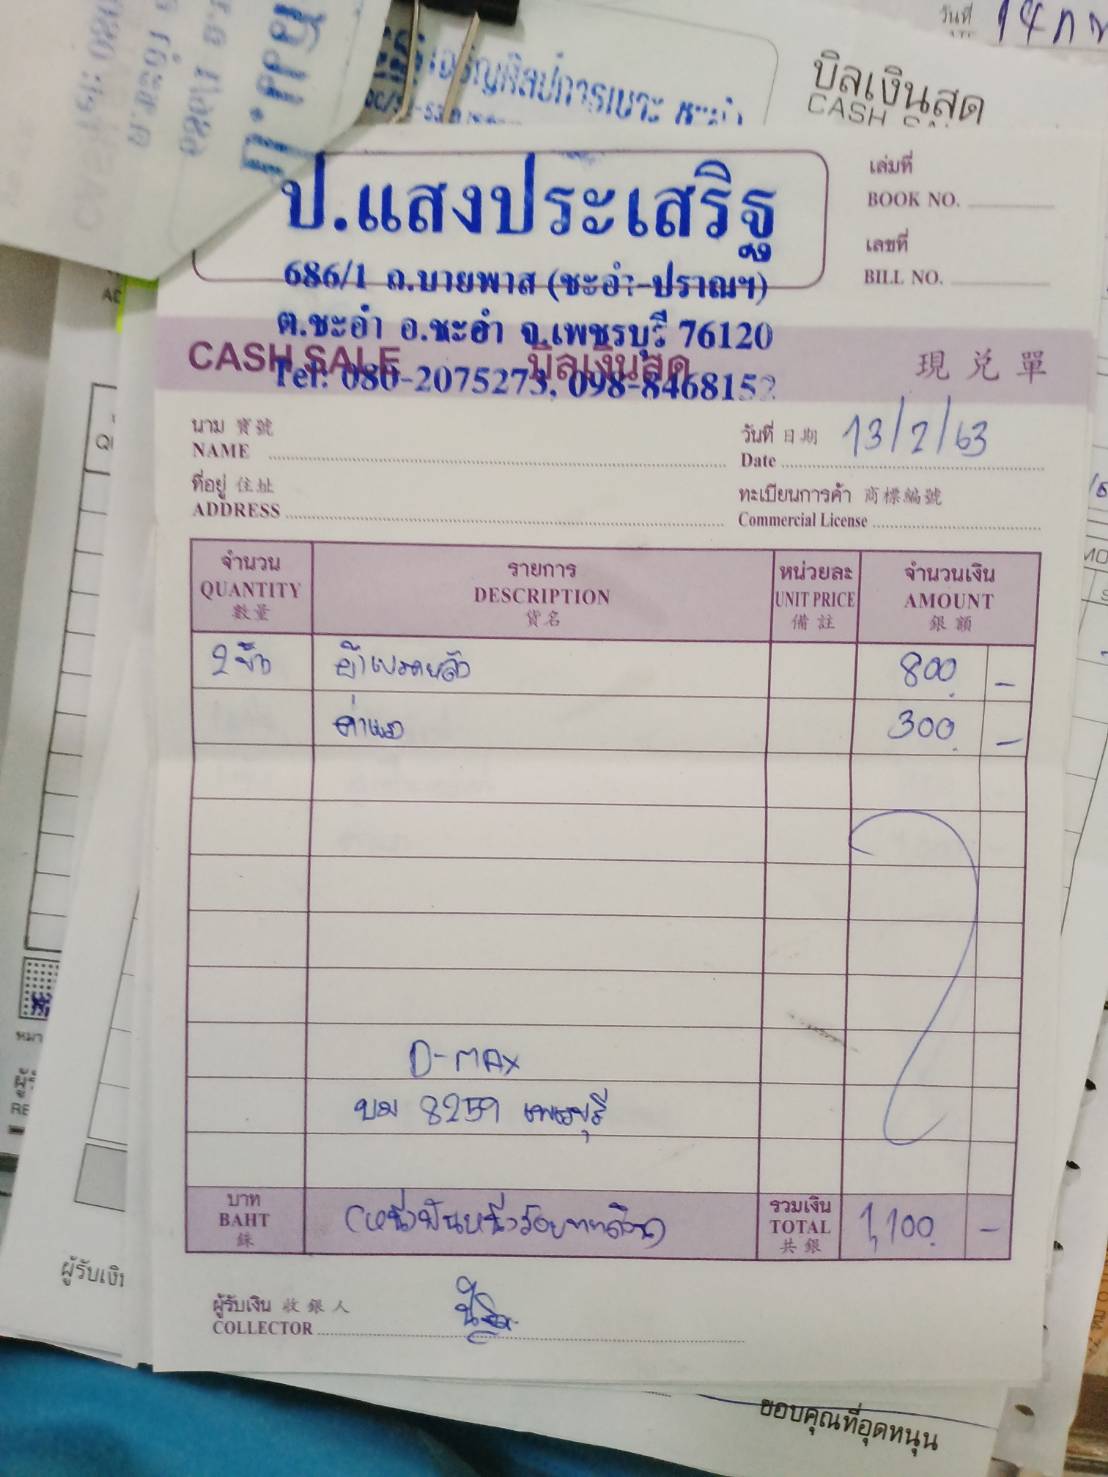 วันที่ 14
บิลเงินสด
CASH
ป.แสงประเสริฐ
686/1 ถ.บายพาส (ชะอำ-ปราณฯ)
ต.ชะอำ อ.ชะอำ จ.เพชรบุรี 76120
Tel: 080-2075273, 098-8468152
เล่มที่
BOOK NO.
เลขที่
BILL NO.
CASH SALE บิลเงินสด 現兑單
นาม 寶號
NAME
วันที่ 日期 13/2/63
Date
ที่อยู่ 住址
ADDRESS
ทะเบียนการค้า 商標編號
Commercial License
จำนวน รายการ หน่วยละ จำนวนเงิน
QUANTITY DESCRIPTION UNIT PRICE AMOUNT
數量 貨名 備註 銀額
2 ข้าง ผ้าเบรคหลัง 800 –
ค่าแรง 300 –
D-MAX
บม 8259 เพชรบุรี
บาท
BAHT
銖
(หนึ่งพันหนึ่งร้อยบาทถ้วน)
รวมเงิน
TOTAL
共銀
1,100 –
ผู้รับเงิน 收銀人
COLLECTOR
ผู้รับเงิน
ขอบคุณที่อุดหนุน